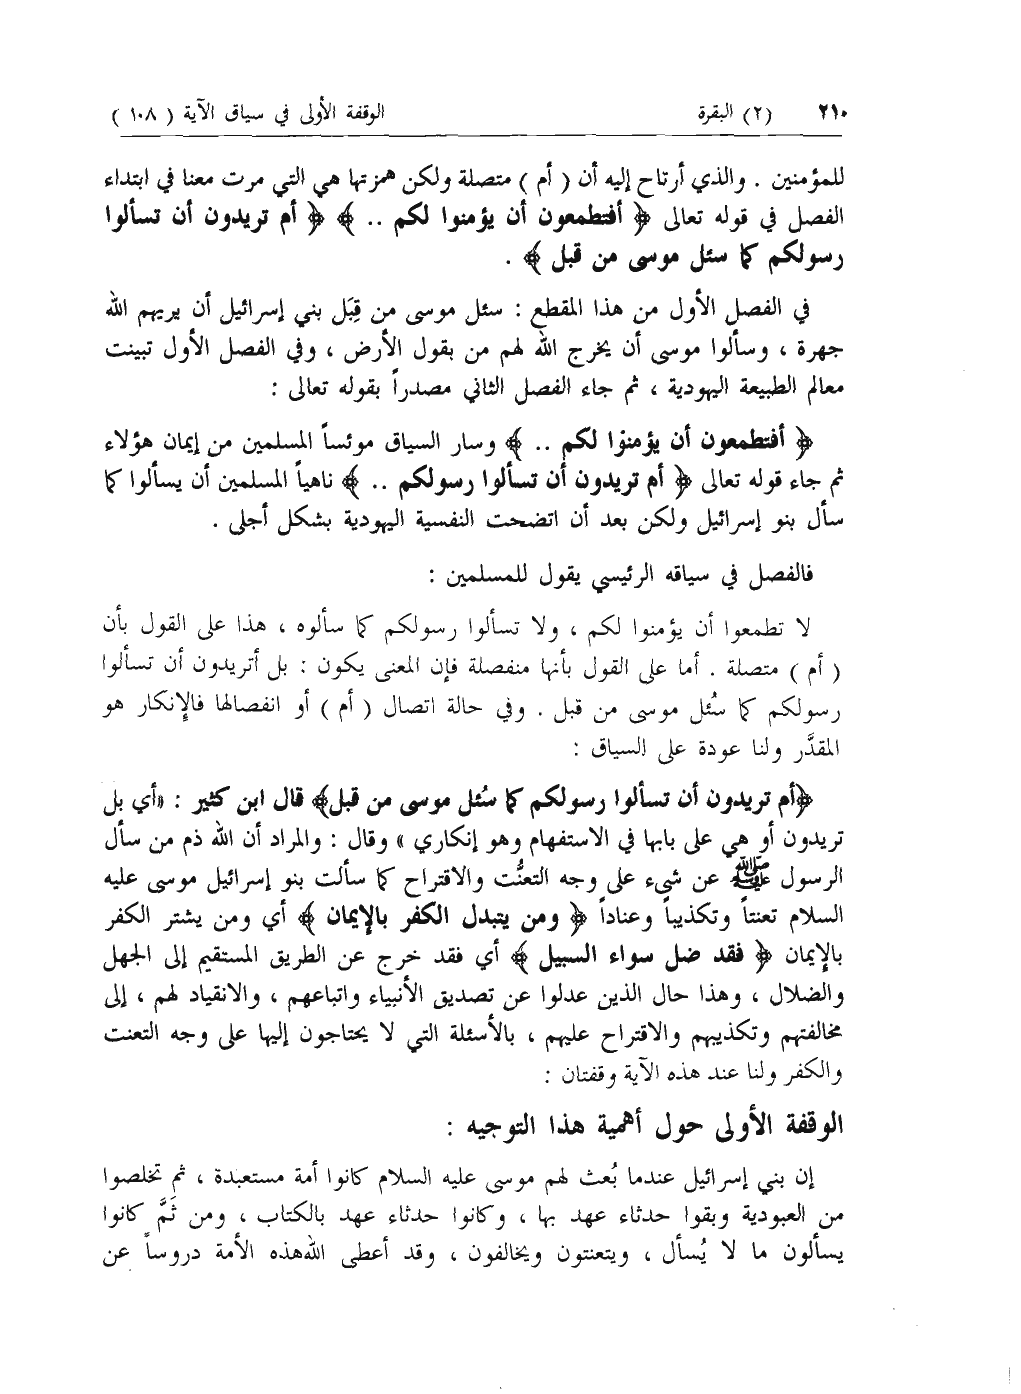 ٢١٠ (٢) البقرة الوقفة الأولى في سياق الآية ( ١٠٨ )
للمؤمنين . والذي أرتاح إليه أن ( أم ) متصلة ولكن همزتها هي التي مرت معنا في ابتداء
الفصل في قوله تعالى ﴿ أفتطمعون أن يؤمنوا لكم .. ﴾ ﴿ أم تريدون أن تسألوا
رسولكم كما سئل موسى من قبل ﴾ .
في الفصل الأول من هذا المقطع : سئل موسى من قِبَل بني إسرائيل أن يريهم الله
جهرة ، وسألوا موسى أن يخرج الله لهم من بقول الأرض ، وفي الفصل الأول تبينت
معالم الطبيعة اليهودية ، ثم جاء الفصل الثاني مصدراً بقوله تعالى :
﴿ أفتطمعون أن يؤمنوا لكم .. ﴾ وسار السياق موئساً المسلمين من إيمان هؤلاء
ثم جاء قوله تعالى ﴿ أم تريدون أن تسألوا رسولكم .. ﴾ ناهياً المسلمين أن يسألوا كما
سأل بنو إسرائيل ولكن بعد أن اتضحت النفسية اليهودية بشكل أجلى .
فالفصل في سياقه الرئيسي يقول للمسلمين :
لا تطمعوا أن يؤمنوا لكم ، ولا تسألوا رسولكم كما سألوه ، هذا على القول بأن
( أم ) متصلة . أما على القول بأنها منفصلة فإن المعنى يكون : بل أتريدون أن تسألوا
رسولكم كما سُئل موسى من قبل . وفي حالة اتصال ( أم ) أو انفصالها فالإنكار هو
المقدَّر ولنا عودة على السياق :
﴿أم تريدون أن تسألوا رسولكم كما سُئل موسى من قبل﴾ قال ابن كثير : «أي بل
تريدون أو هي على بابها في الاستفهام وهو إنكاري » وقال : والمراد أن الله ذم من سأل
الرسول ﷺ عن شيء على وجه التعنُّت والاقتراح كما سألت بنو إسرائيل موسى عليه
السلام تعنتاً وتكذيباً وعناداً ﴿ ومن يتبدل الكفر بالإيمان ﴾ أي ومن يشتر الكفر
بالإيمان ﴿ فقد ضل سواء السبيل ﴾ أي فقد خرج عن الطريق المستقيم إلى الجهل
والضلال ، وهذا حال الذين عدلوا عن تصديق الأنبياء واتباعهم ، والانقياد لهم ، إلى
مخالفتهم وتكذيبهم والاقتراح عليهم ، بالأسئلة التي لا يحتاجون إليها على وجه التعنت
والكفر ولنا عند هذه الآية وقفتان :
الوقفة الأولى حول أهمية هذا التوجيه :
إن بني إسرائيل عندما بُعث لهم موسى عليه السلام كانوا أمة مستعبدة ، ثم تخلصوا
من العبودية وبقوا حدثاء عهد بها ، وكانوا حدثاء عهد بالكتاب ، ومن ثَمَّ كانوا
يسألون ما لا يُسأل ، ويتعنتون ويخالفون ، وقد أعطى الله هذه الأمة دروساً عن